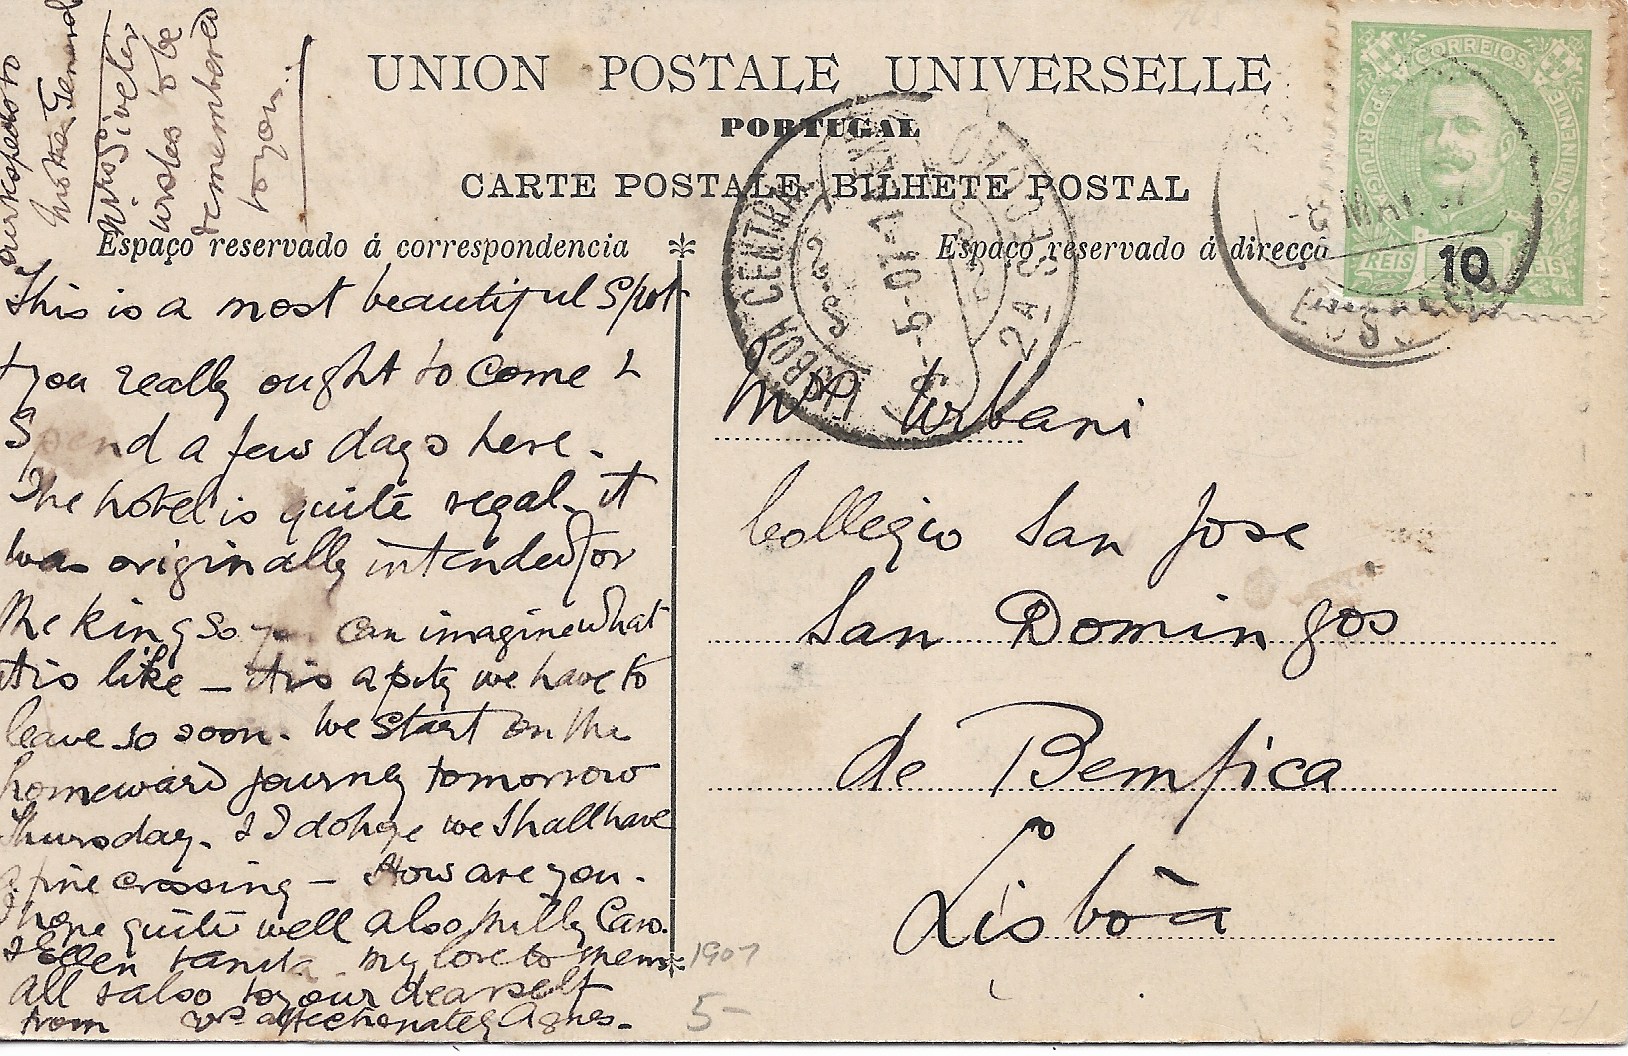 UNION POSTALE UNIVERSELLE
PORTUGAL
CARTE POSTALE BILHETE POSTAL
Espaço reservado á correspondencia
Espaço reservado á direcçã
This is a most beautiful spot
+ you really ought to come &
spend a few days here.
The hotel is quite regal. it
was originally intended for
the king so you can imagine what
it is like – it is a pity we have to
leave so soon. We start on the
homeward journey tomorrow
Thursday. & I do hope we shall have
a fine crossing – How are you.
I hope quite well also Milly Caro.
& Ellen . my love to them
all & also to your dear self
from yrs affectionately Agnes.
our respects to
Mother General
wishes to be
remembered
to you...
Urbani
Collegio San Jose
San Domingos
de Bemfica
Lisboa
CORREIOS
PORTUGAL
CONTINENTE
REIS 10 REIS
LISBOA CENTRAL
5-07
2A SECÇÃO
MAI
1907
5-